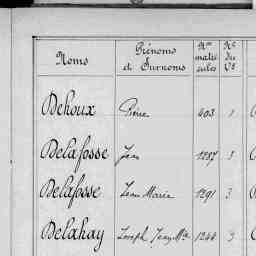 Noms Prénoms et Surnoms Nos matri cules Nos du Vo
Dehoux Pierre 403 1
Delafosse Jean 1287 3
Delafosse Jean Marie 1291 3
Delahay Joseph Jean Mie 1244 3